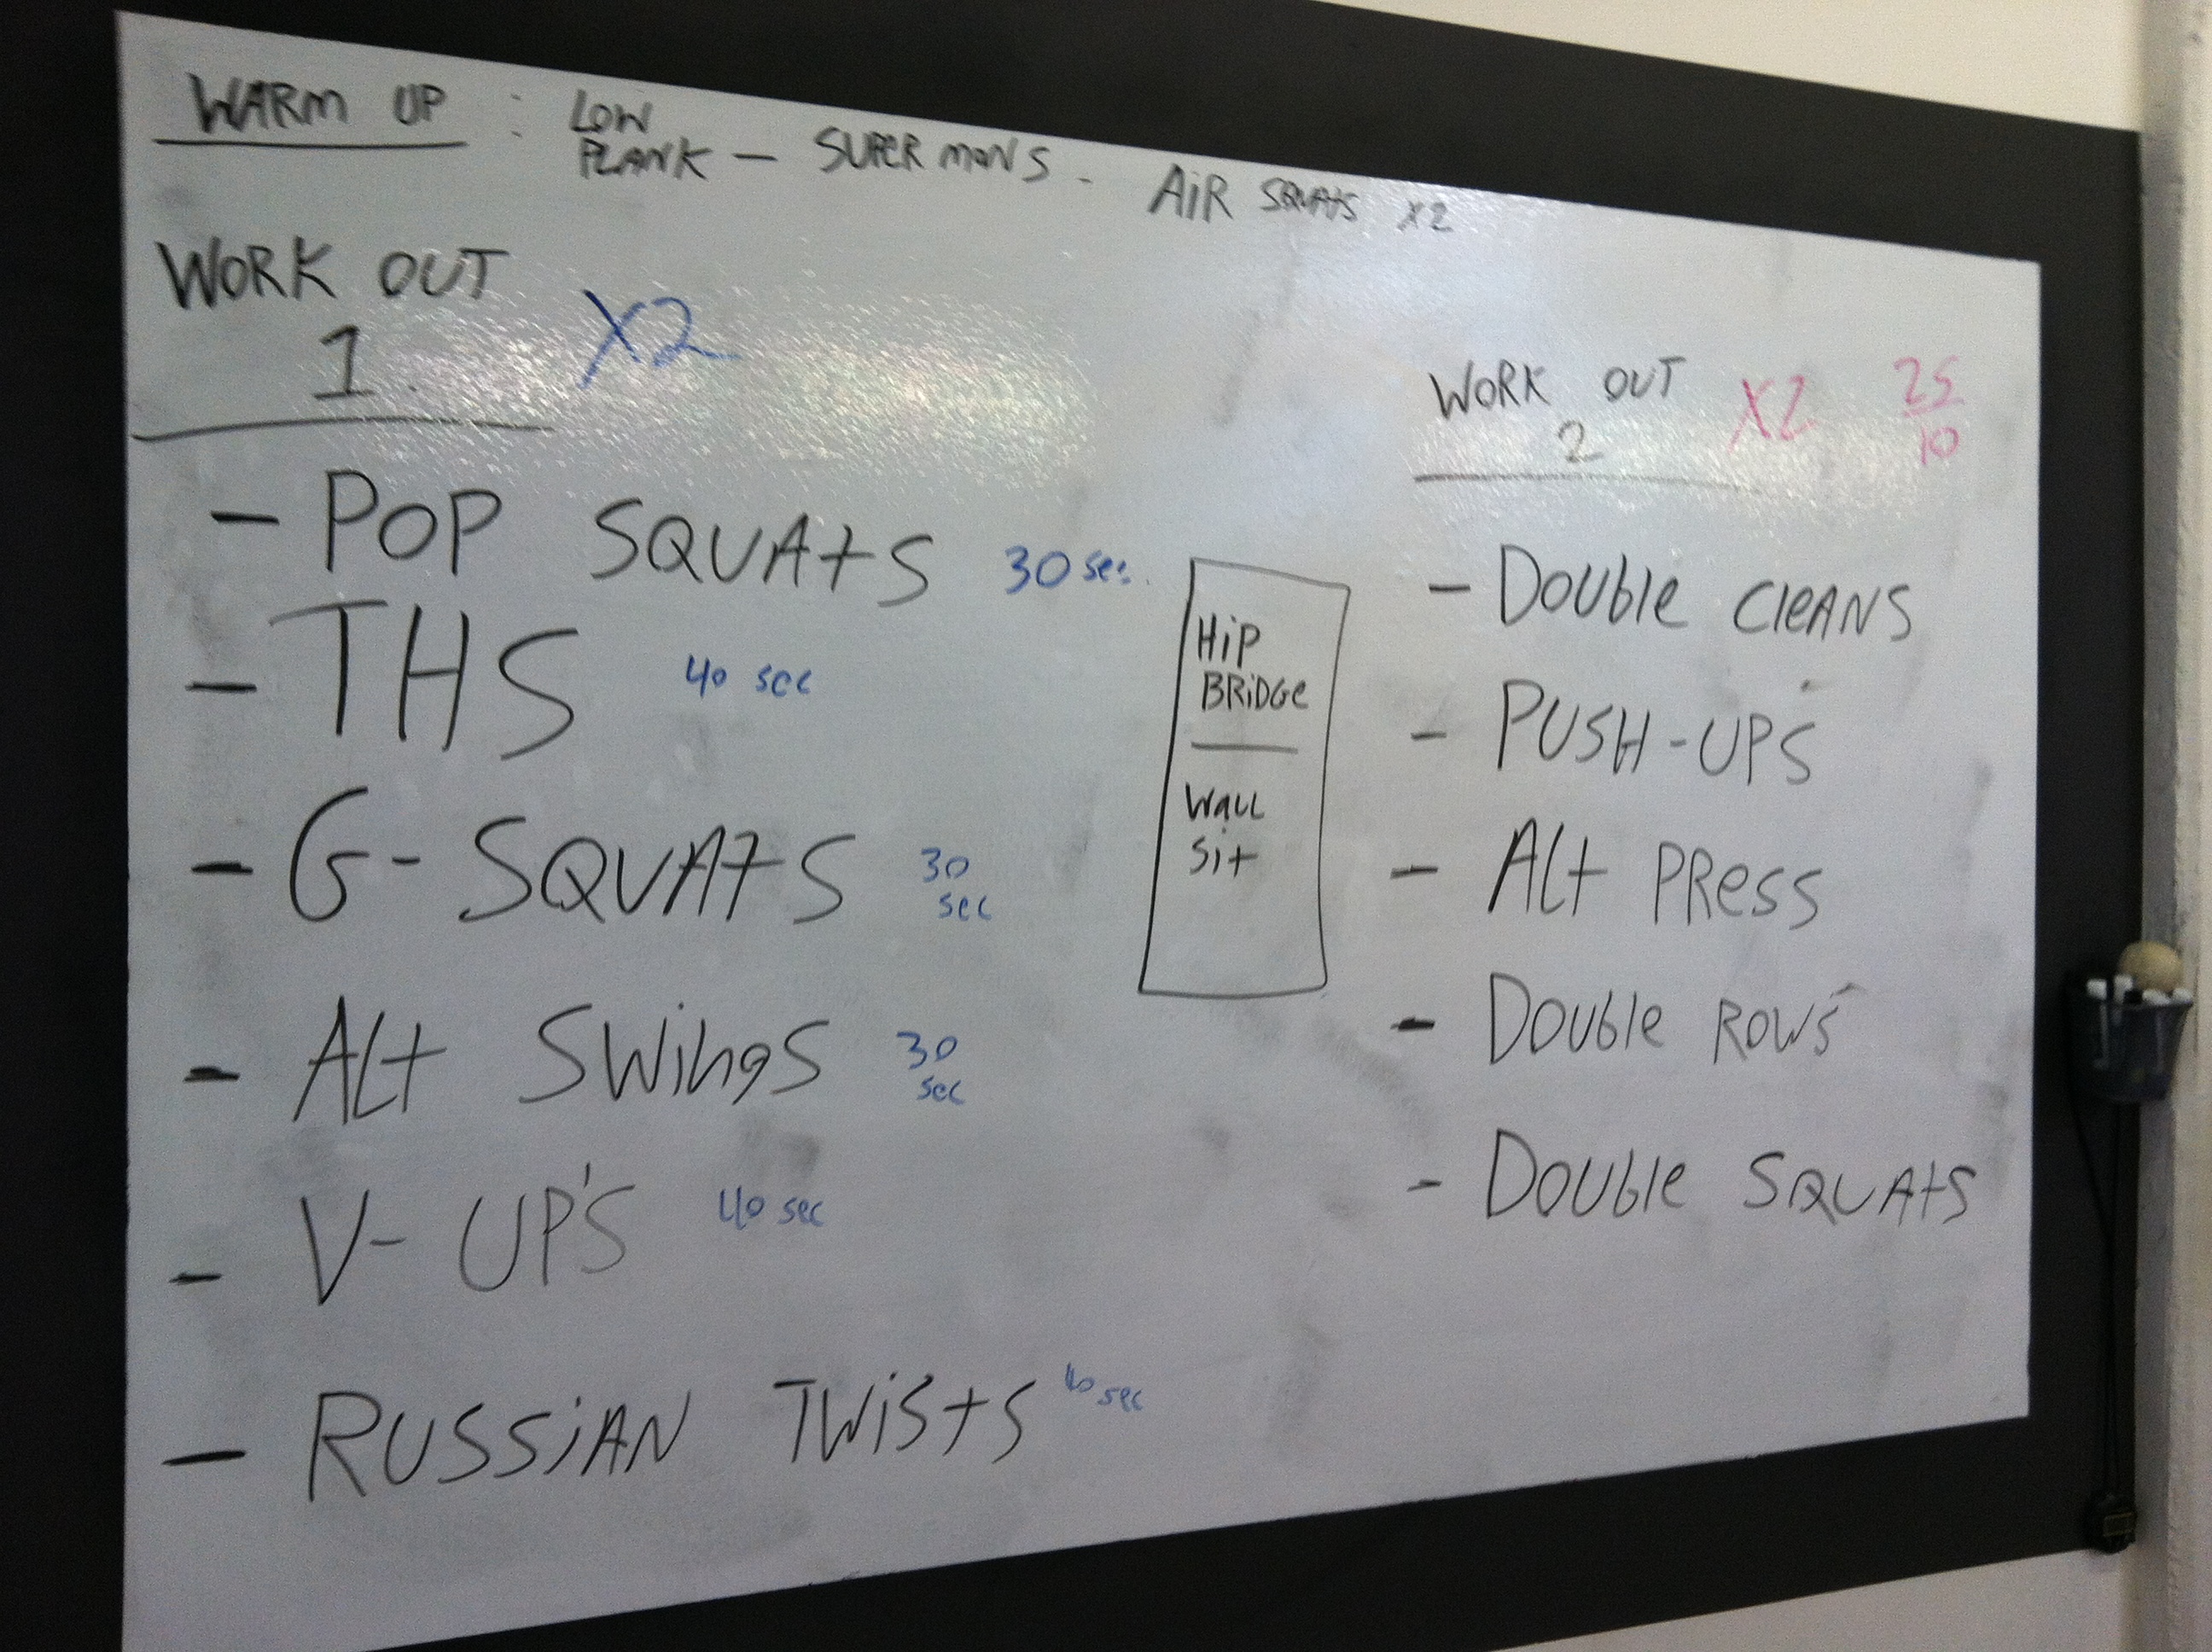 WARM UP : LOW PLANK - SUPERMANS - AIR SQUATS X2
WORK OUT
1. X2
- POP SQUATS 30 sec.
- THS 40 sec
- G-SQUATS 30 sec
- ALT SWINGS 30 sec
- V-UP'S 40 sec
- RUSSIAN TWISTS 40 sec
HIP
BRIDGE
WALL
SIT
WORK OUT X2 25
2 10
- DOUBLE CLEANS
- PUSH-UPS
- ALT PRESS
- DOUBLE ROWS
- DOUBLE SQUATS